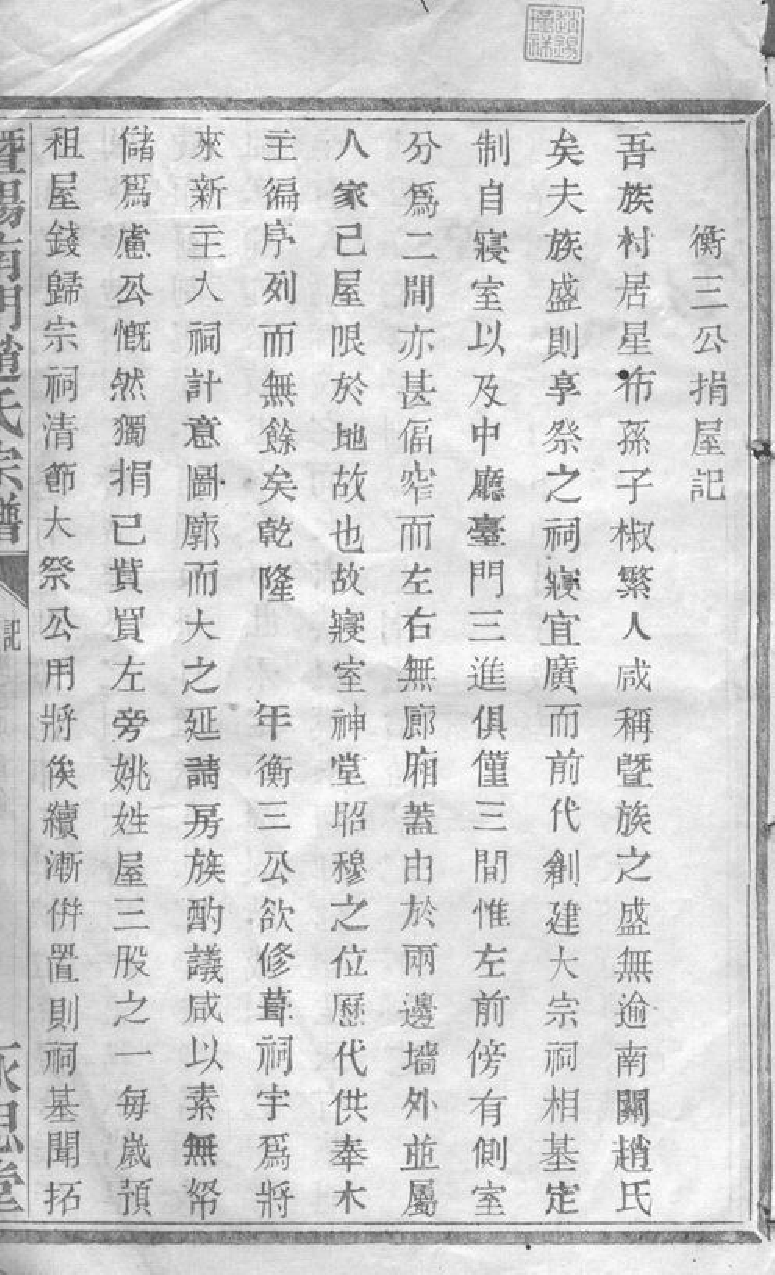 衡三公捐屋記
吾族村居星布孫子椒繁人咸稱暨族之盛無逾南關趙氏
矣夫族盛則享祭之祠寢宜廣而前代創建大宗祠相基定
制自寢室以及中廳臺門三進俱僅三間惟左前傍有側室
分爲二間亦甚偪窄而左右無廊廂蓋由於兩邊墻外並屬
人家已屋限於地故也故寢室神堂昭穆之位歷代供奉木
主徧序列而無餘矣乾隆　　年衡三公欲修葺祠宇爲將
來新主入祠計意圖廓而大之延請房族酌議咸以素無帑
儲爲慮公慨然獨捐已貲買左旁姚姓屋三股之一每歲預
租屋錢歸宗祠清節大祭公用將俟續漸併置則祠基開拓
暨陽南門趙氏宗譜
記
永思堂